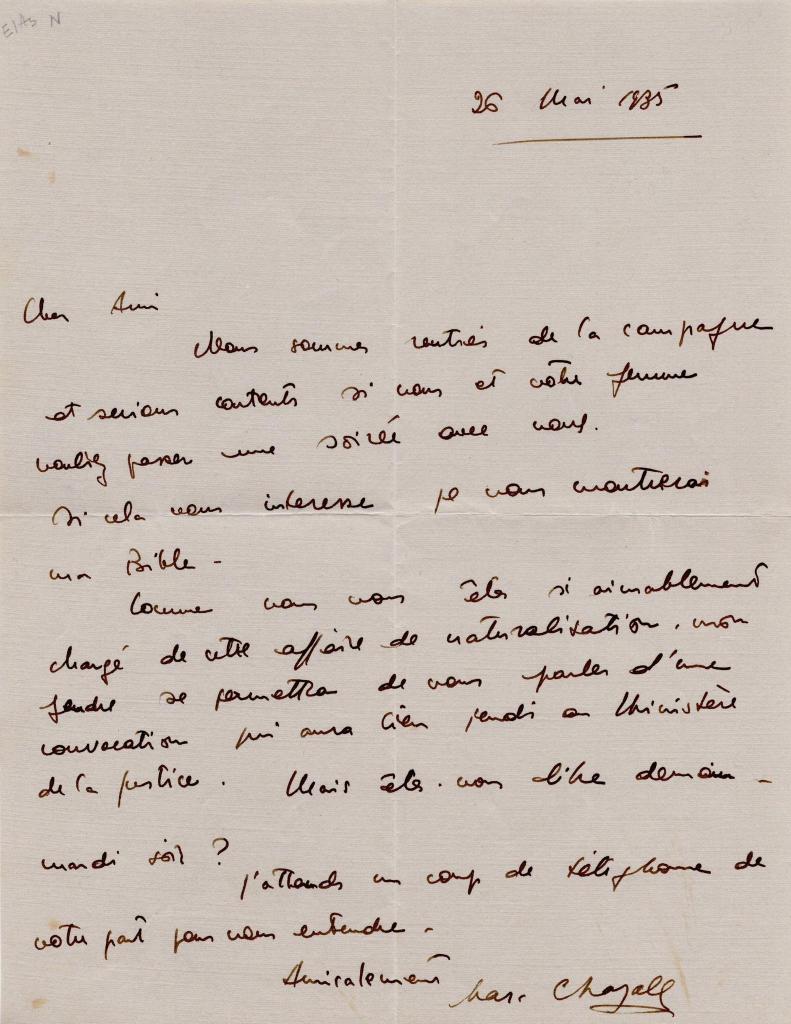 EIAS N
26 Mai 1935
Cher Ami
Nous sommes rentrés de la campagne
et serions contents si vous et votre femme
vouliez passer une soirée avec nous.
Si cela vous interesse je vous montrerai
ma Bible -
Comme vous vous êtes si aimablement
chargé de cette affaire de naturalisation, mon
gendre se permettra de vous parler d'une
convocation qui aura lieu jeudi au Ministère
de la justice. Mais êtes-vous libre demain -
mardi soir ?
J'attends un coup de téléphone de
votre part pour nous entendre -
Amicalement
Marc Chagall